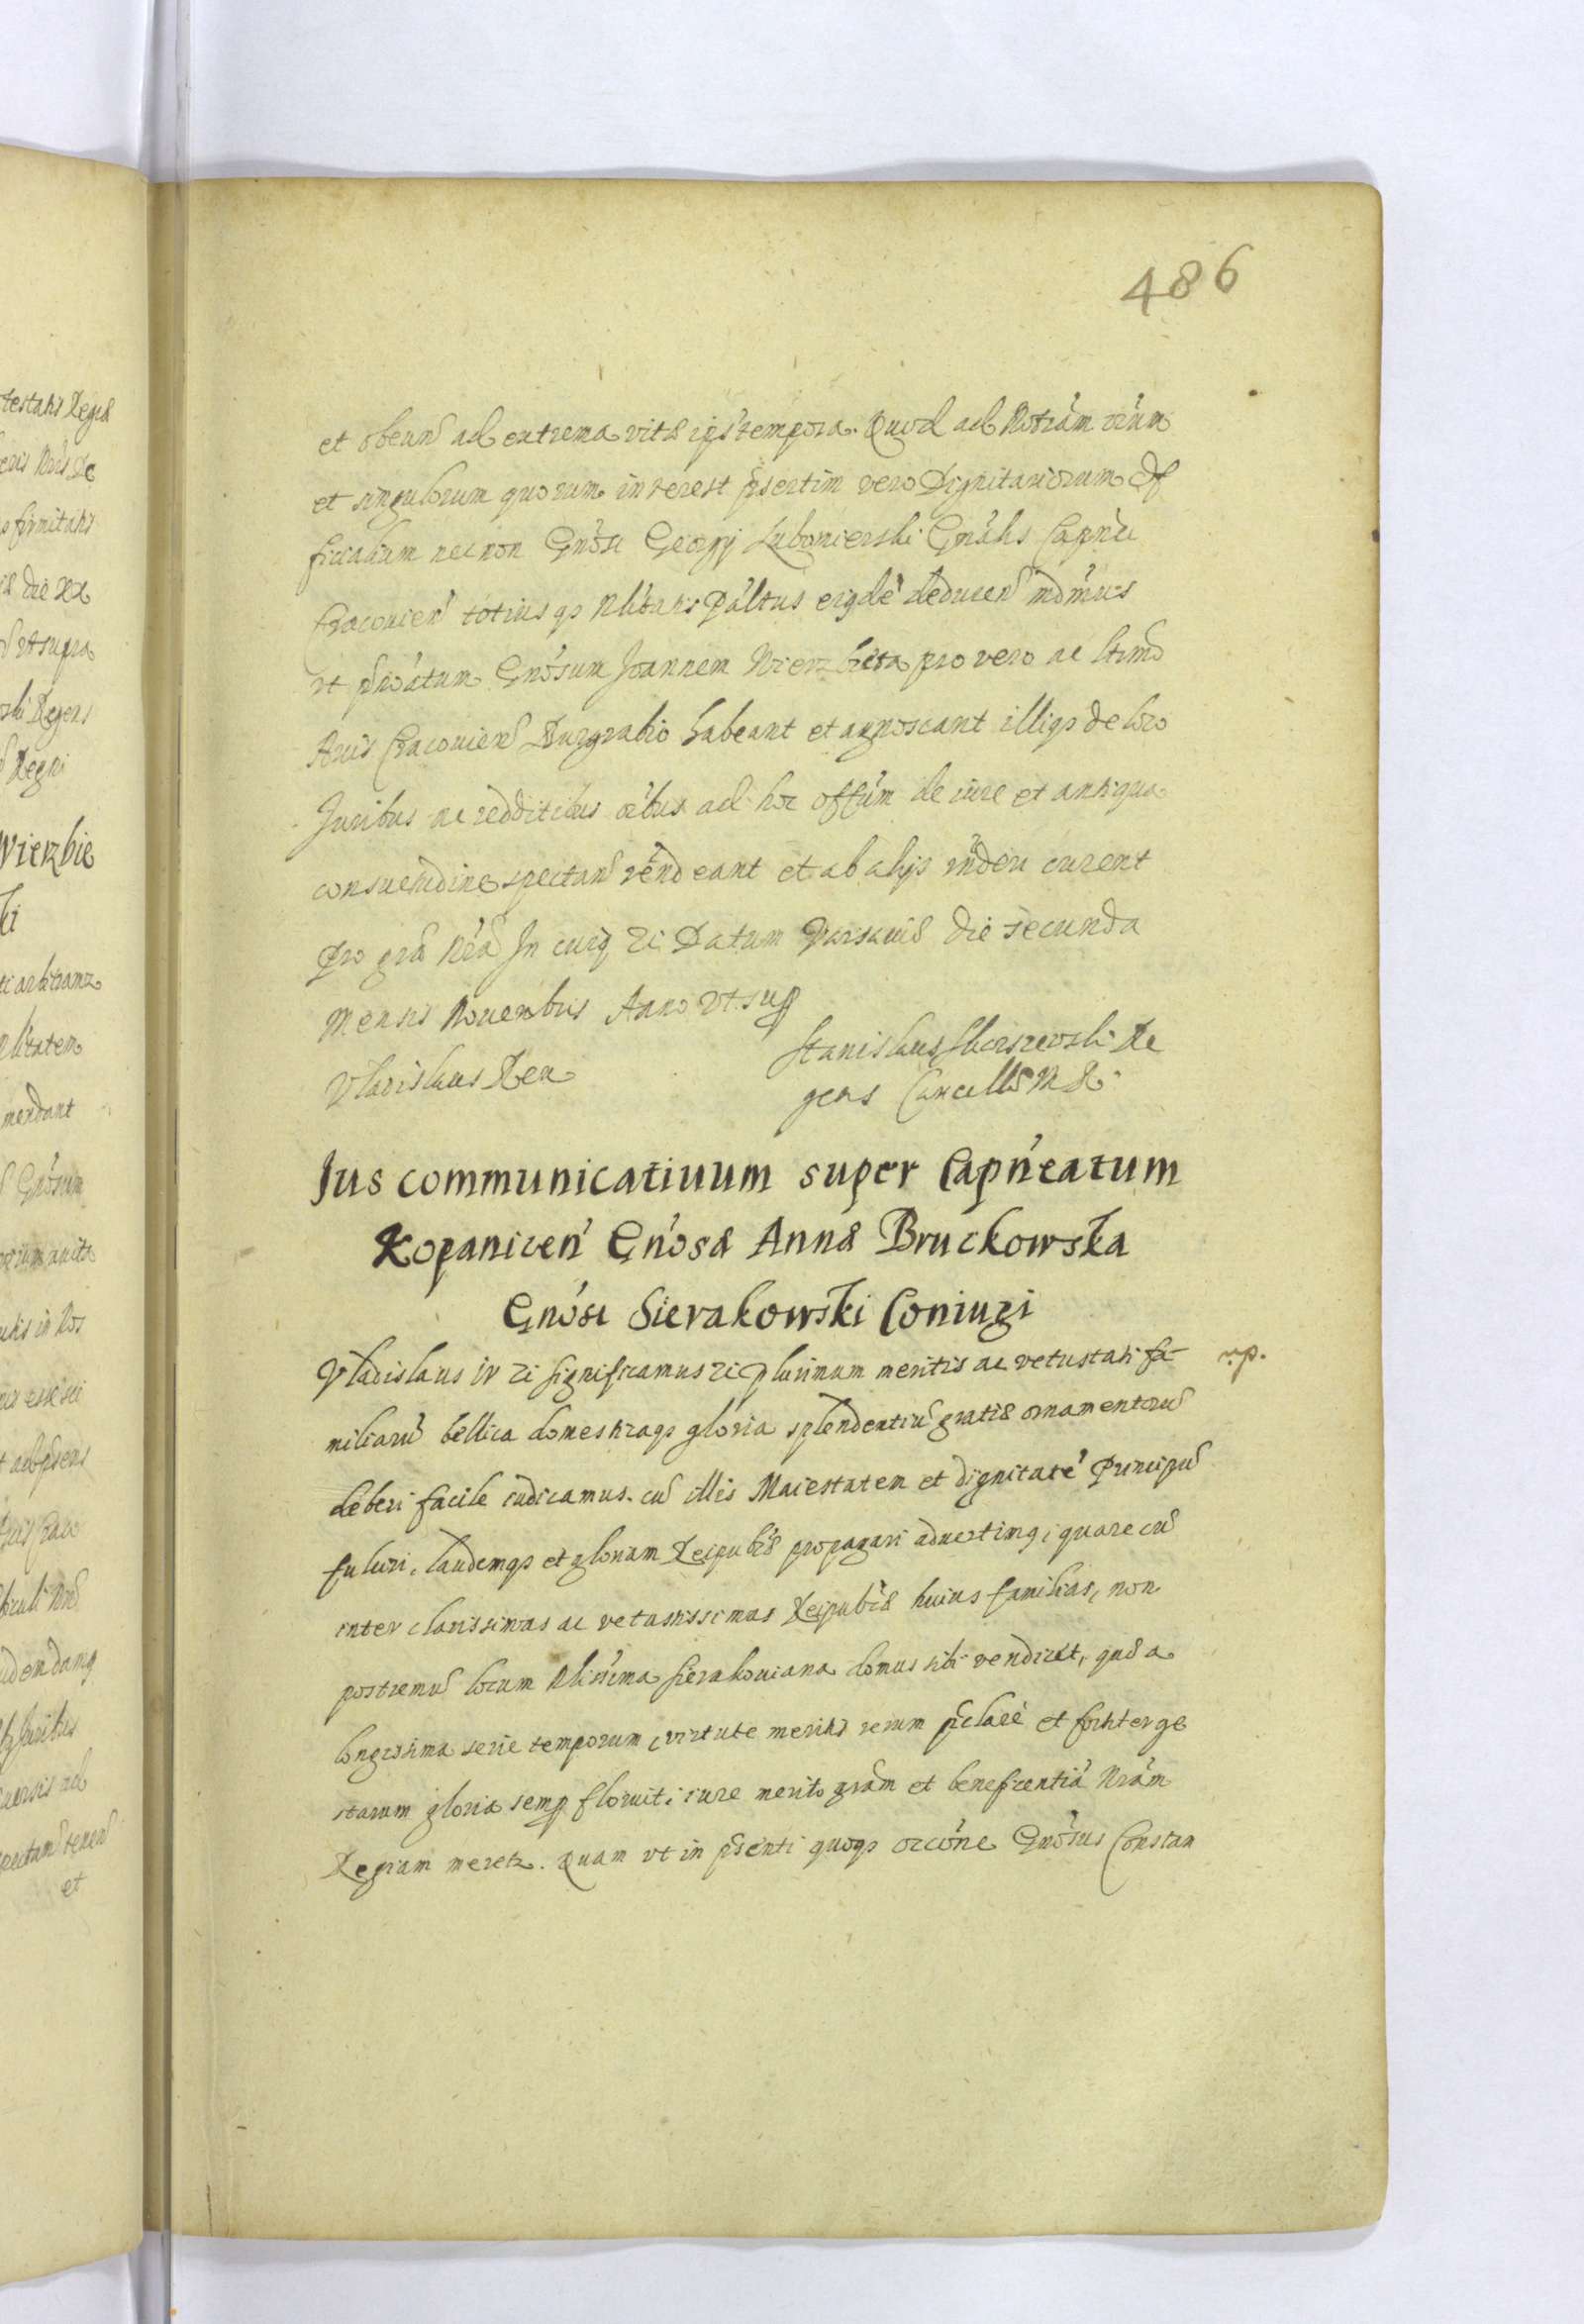 486
et obeunđ ad extrema vitæ ejs tempora. Quod ad Notiam oium
et singulorum quorum interest psertim vero Dignitariorum Of
ficialium nec non Gnosi Georgij Lubomierski Gnalis Capnei
Cracovien totius qs Nlitatis Paltus eiqde deducen mdmus
vt pnoatum Gnosum Joannem Wierzbieta pro vero ac ltimo
Arcis Cracovien Burgrabio habeant et agnoscant illiqs de loco
Juribus ac redditibus oibus ad hoc offum de iure et antiqua
consuetudine spectan rndeant et ab alijs rnderi curent
pro gra nra In cuiq Zc Datum Varsaviæ die secunda
Mensis Nouembris Anno vt sup
Vladislaus Rex
Stanislaus Skarszewski Re
gens Cancellæ M R.
Jus communicatiuum super Capneatum
Kopanicen Gnosæ Annæ Bruckowska
Gnosi Sierakowski Coniugi
Vladislaus IV Zc significamus Zc plurimum meritis ac vetustati fa-
miliaru bellica domesticaqs gloria splendentiu gratiæ ornamentoru
deberi facile iudicamus. cu illis Maiestatem et dignitate Principu
fulciri, laudemqs et gloriam Reipubcæ propagari aduertimq; quare cu
inter clarissimas ac vetustissimas Reipubcæ huius familias, non
postremu locum Nlissima Sierakouiana domus sibi vendicet, quæ a
longissima serie temporum, virtute meritis rerum pclare et fortiter ge
starum gloria semp floruit; iure merito gram et beneficentia Nram
Regiam meretr. Quam vt in psenti quoqs occone Gnosus Constan